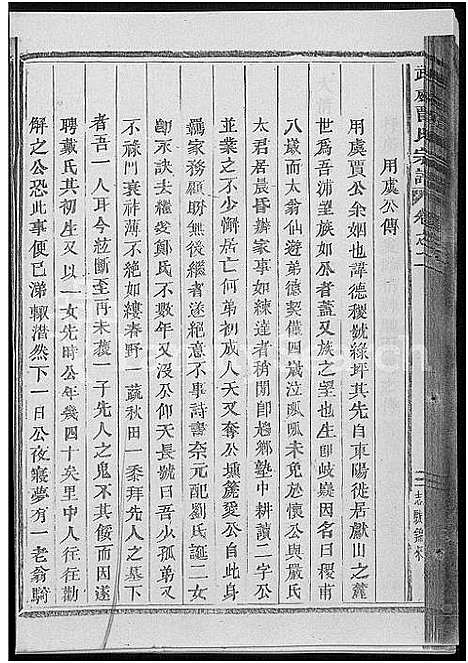 武威賈氏宗譜 卷之二
用虞公傳
用虞賈公余姻也諱德稷號綠坪其先自東陽徙居獻山之麓
世爲吾浦望族如公者蓋又族之望也生即岐嶷因名曰稷甫
八歲而太翁仙遊弟德契僅四歲泣呱呱未免於懷公與嚴氏
太君居晨昏辦家事如練達者稍閒即趨鄉塾中耕讀二字公
並業之不少懈居亡何弟初成人天又奪公壎篪愛公自此身
羈家務顧盼無後繼者遂絕意不事詩書奈元配劉氏誕二女
卽永訣去繼娶鄭氏不數年又沒公仰天長號曰吾少孤弟又
不祿門衰祚薄不絕如縷春野一蔬秋田一黍拜先人之墓下
者吾一人耳今絃斷至再未獲一子先人之鬼不其餒而因遂
聘戴氏其初生又以一女先時公年幾四十矣里中人往往勸
解之公恐此事便已涕輒潸然下一日公夜寢夢有一老翁騎